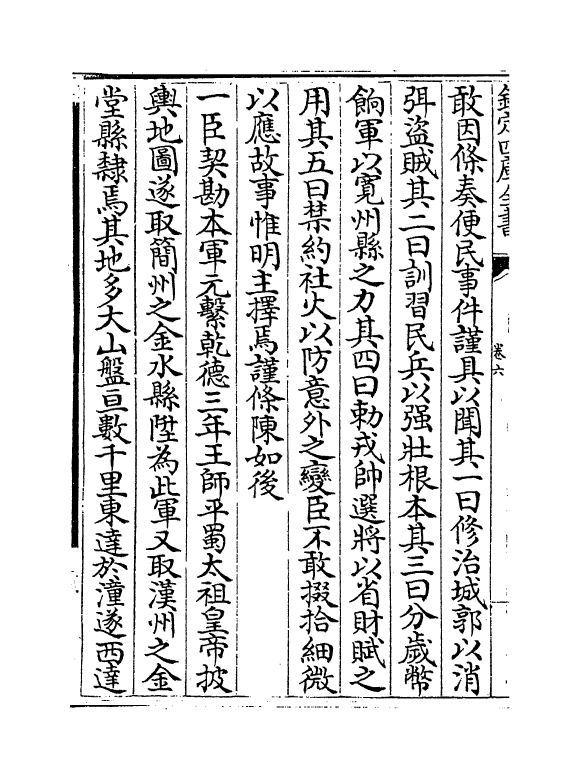 欽定四庫全書
卷六
敢因條奏便民事件謹具以聞其一曰修治城郭以消
弭盜賊其二曰訓習民兵以强壯根本其三曰分歲幣
餉軍以寛州縣之力其四曰勅戎帥選將以省財賦之
用其五曰禁約社火以防意外之變臣不敢掇拾細微
以應故事惟明主擇焉謹條陳如後
一臣契勘本軍元繫乾德三年王師平蜀太祖皇帝披
輿地圖遂取簡州之金水縣陞為此軍又取漢州之金
堂縣隸焉其地多大山盤亘數千里東達於潼遂西達